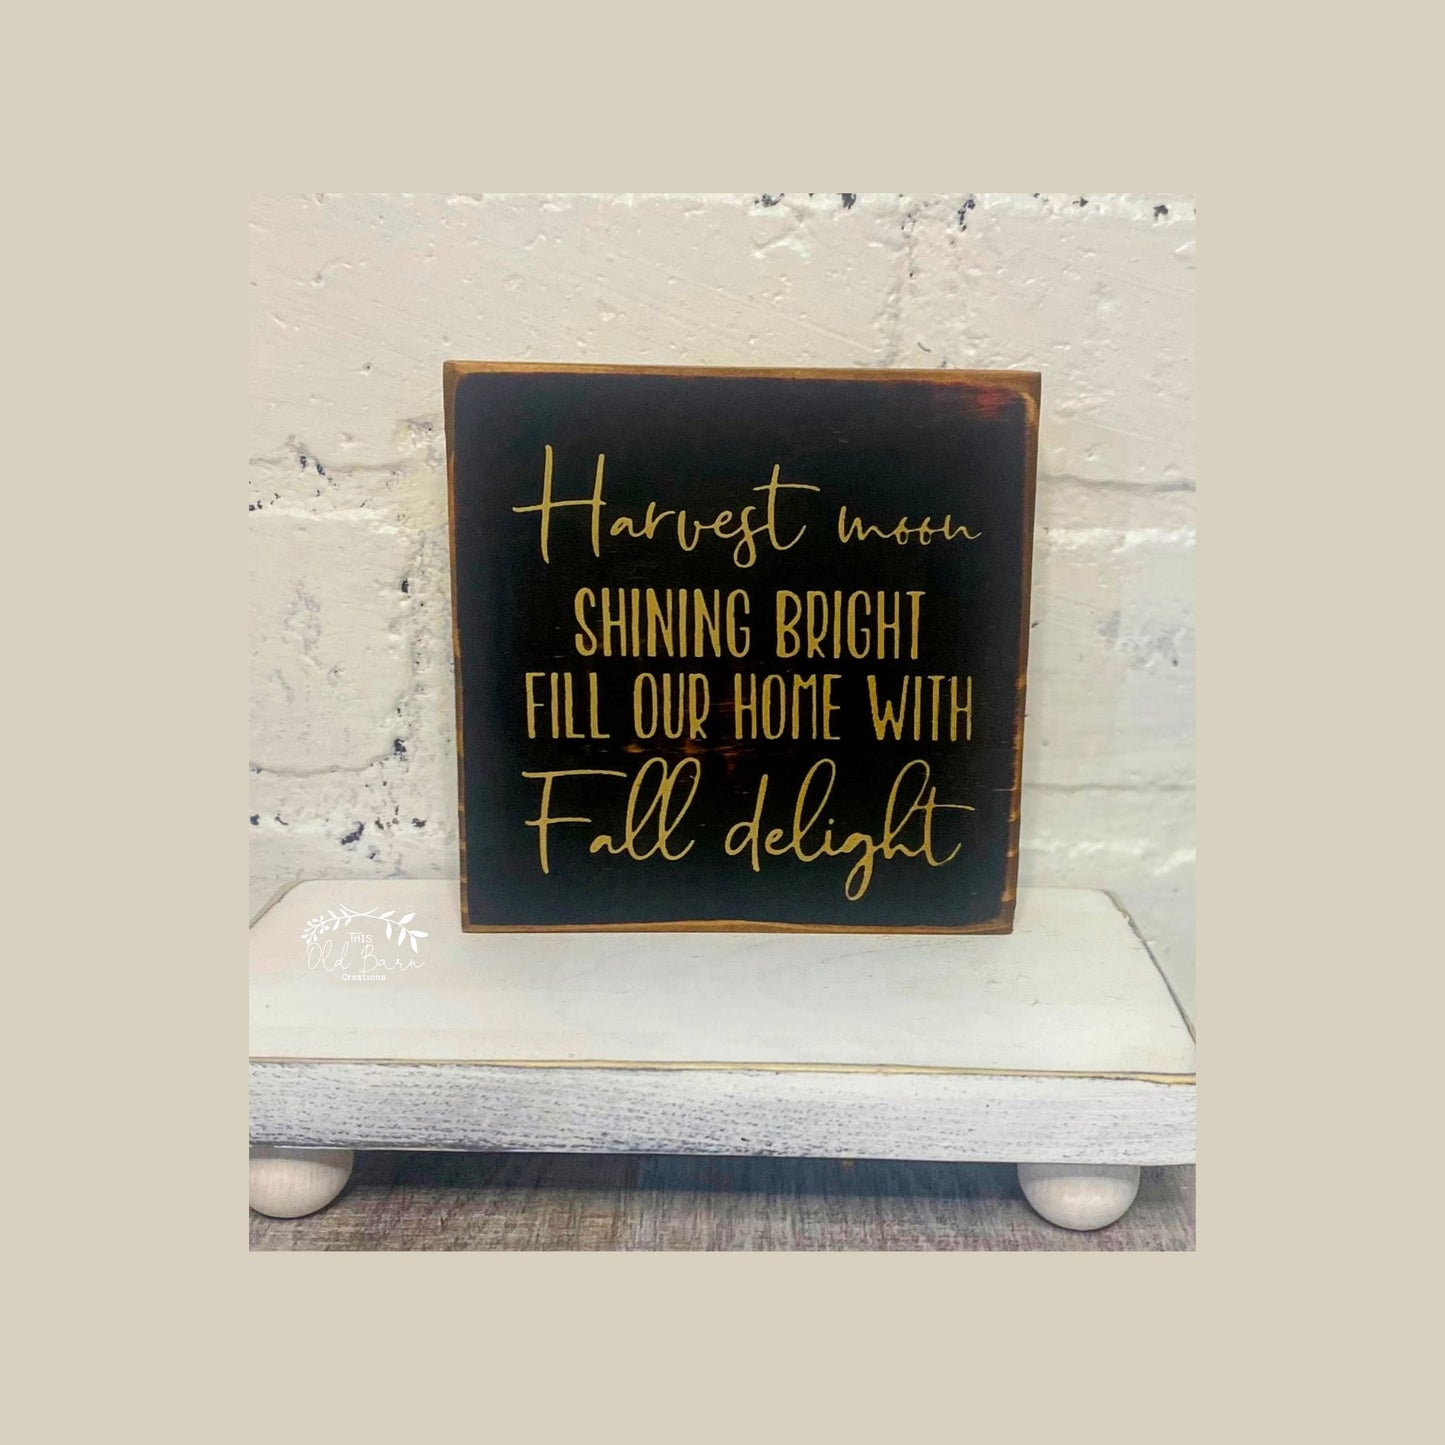 Harvest moon
SHINING BRIGHT
FILL OUR HOME WITH
Fall delight
THIS
Old Barn
Creations